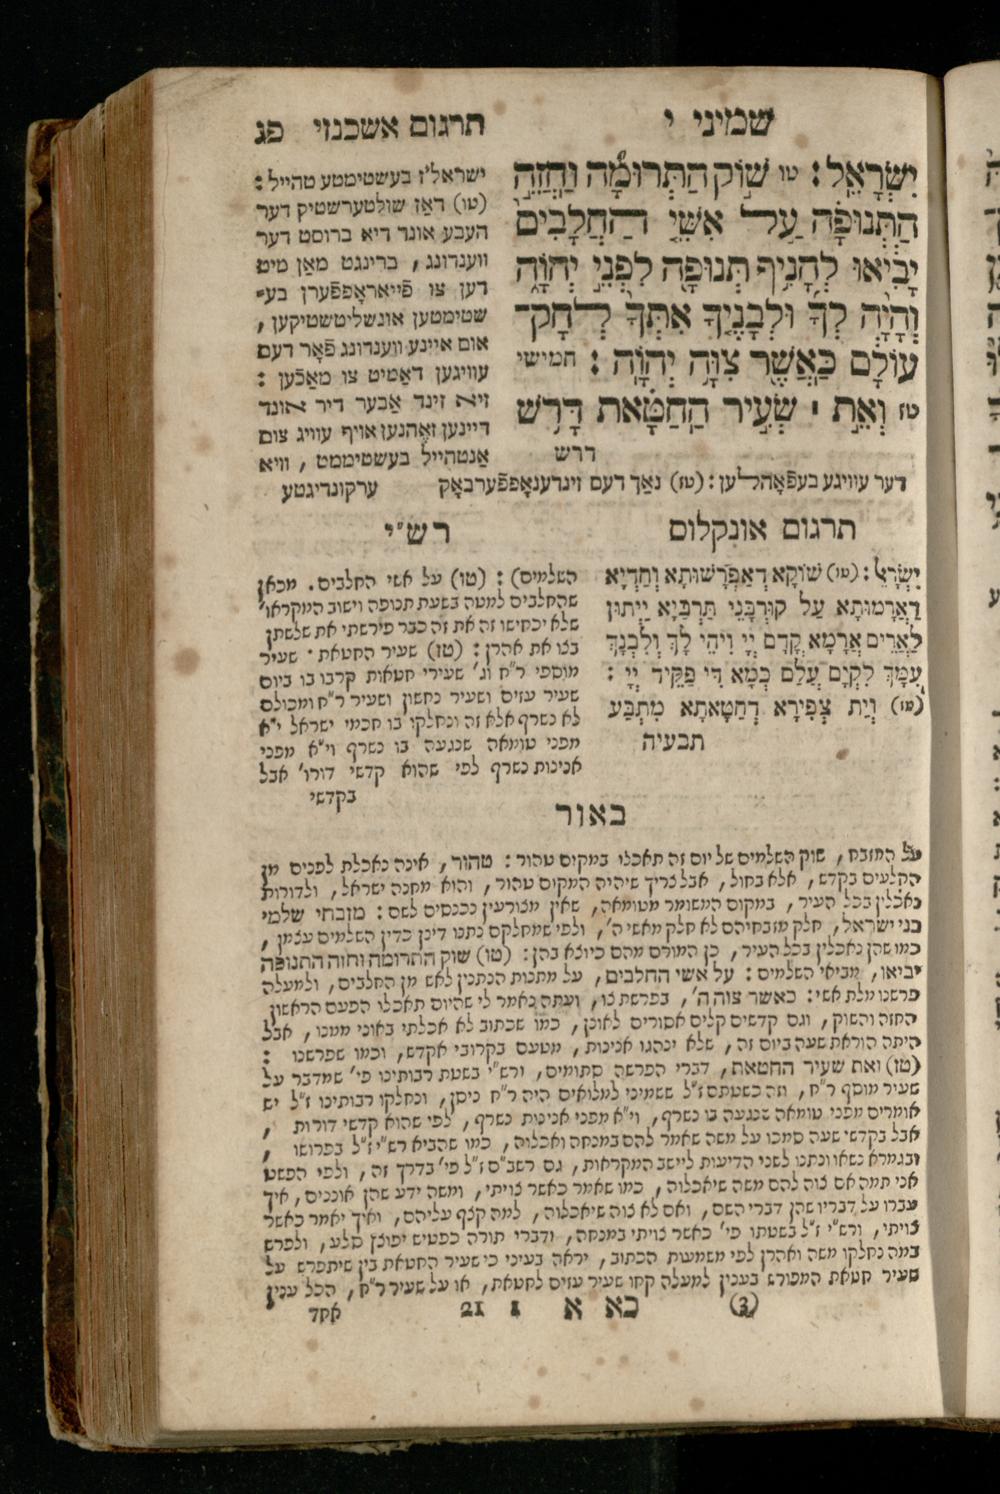 שמיני י
תרגום אשכנזי פג
יִשְׂרָאֵל׃ טו שׁוֹק הַתְּרוּמָה וַחֲזֵה
הַתְּנוּפָה עַל אִשֵּׁי הַחֲלָבִים
יָבִיאוּ לְהָנִיף תְּנוּפָה לִפְנֵי יְהוָה
וְהָיָה לְךָ וּלְבָנֶיךָ אִתְּךָ לְחָק־
עוֹלָם כַּאֲשֶׁר צִוָּה יְהוָה׃ חמישי
טז וְאֵת ׀ שְׂעִיר הַחַטָּאת דָּרֹשׁ
דרש
ישראל'ז בעשטימטע טהייל:
(טו) דאַז שולטערשטיק דער
העבע אונד דיא ברוסט דער
ווענדונג, ברינגט מאַן מיט
דען צו פֿייאראָפּפֿערן בע־
שטימטען אונשליטשטיקען,
אום איינע ווענדונג פֿאָר דעם
עוויגען דאַמיט צו מאַכֿען:
זיא זינד אַבער דיר אונד
דיינען זאָהנען אויף עוויג צום
אַנטהייל בעשטיממט, וויא
דער עוויגע בעפֿאָהלען: (טז) נאַך דעם זינדענאָפּפֿערבאָק ערקונדיגטע
תרגום אונקלוס
יִשְׂרָאֵל: (טו) שׁוֹקָא דְאַפְרָשׁוּתָא וְחַדְיָא
דַאֲרָמוּתָא עַל קוּרְבָּנֵי תַרְבַּיָא יַיְתוּן
לַאֲרָמָא אֲרָמָא קֳדָם יְיָ וִיהֵי לָךְ וְלִבְנָךְ
עִמָּךְ לִקְיָם עֲלַם כְּמָא דִי פַקֵּיד יְיָ:
(טז) וְיָת צְפִירָא דְחַטָּאתָא מִתְבַּע
תבעיה
רש"י
השלמים): (טו) על אשי החלבים. מכאן
שהחלבים למטה בשעת תנופה וישוב המקראו'
שלא יכחישו זה את זה כבר פירשתי את שלשתן
בצו את אהרן: (טז) שעיר החטאת. שעיר
מוספי ר"ח וג' שעירי חטאות קרבו בו ביום
שעיר עזים ושעיר נחשון ושעיר ר"ח ומכולם
לא נשרף אלא זה ונחלקו בו חכמי ישראל י"א
מפני טומאה שנגעה בו נשרף וי"א מפני
אנינות נשרף לפי שהוא קדשי דורו' אבל
בקדשי
באור
על המזבח, שוק השלמים של יום זה תאכלו במקום טהור: טהור, אינה נאכלת לפנים מן
הקלעים בקדש, אלא בחול, אבל צריך שיהיה המקום טהור, והוא מחנה ישראל, ולדורות
נאכלין בכל העיר, במקום המשומר מטומאה, שאין מצורעין נכנסים לשם: מזבחי שלמי
בני ישראל, חלק מזבחיהם לא חלק מאשי ה', ולפי שמחלקם נתנו דינן כדין השלמים עצמן,
כמו שהן נאכלין בכל העיר, כן המורם מהם כיוצא בהן: (טו) שוק התרומה וחזה התנופה
יביאו, מביאי השלמים: על אשי החלבים, על מתנות הנתנין לאש מן החלבים, ולמעלה
פרשנו מלת אשי: כאשר צוה ה', בפרשת צו, ועתה נאמר לי שהיום תאכלו הפעם הראשון
החזה והשוק, וגם קדשים קלים אסורים לאונן, כמו שכתוב לא אכלתי באוני ממנו, אבל
היתה הוראת שעה ביום זה, שלא ינהגו אנינות, מטעם בקרובי אקדש, וכמו שפרשנו:
(טז) ואת שעיר החטאת, דברי הפרשה סתומים, ורש"י בשטת רבותינו פי' שמדבר על
שעיר מוסף ר"ח, וזה כשטתם ז"ל ששמיני למלואים היה ר"ח ניסן, ונחלקו רבותינו ז"ל יש
אומרים מפני טומאה שנגעה בו נשרף, וי"א מפני אנינות נשרף, לפי שהוא קדשי דורות,
אבל בקדשי שעה סמכו על משה שאמר להם במנחה ואכלוה, כמו שהביא רש"י ז"ל בפרושו,
ובגמרא נשאו ונתנו לשני הדיעות ליישב המקראות, גם רשב"ם ז"ל פי' בדרך זה, ולפי הפשט
אני תמה אם צוה להם משה שיאכלוה, כמו שאמר כאשר צויתי, ומשה ידע שהן אוננים, איך
עברו על דבריו שהן דברי השם, ואם לא צוה שיאכלוה, למה קצף עליהם, ואיך יאמר כאשר
צויתי, ורש"י ז"ל בשטתו פי' כאשר צויתי במנחה, ודברי תורה כפטיש יפוצץ סלע, ולפרש
במה נחלקו משה ואהרן לפי משמעות הכתוב, יראה בעיני כי שעיר החטאת בין שיתפרש על
שעיר חטאת המפורש בענין למעלה קחו שעיר עזים לחטאת, או על שעיר ר"ח, הכל ענין
(3) כא א 1 21 אחד